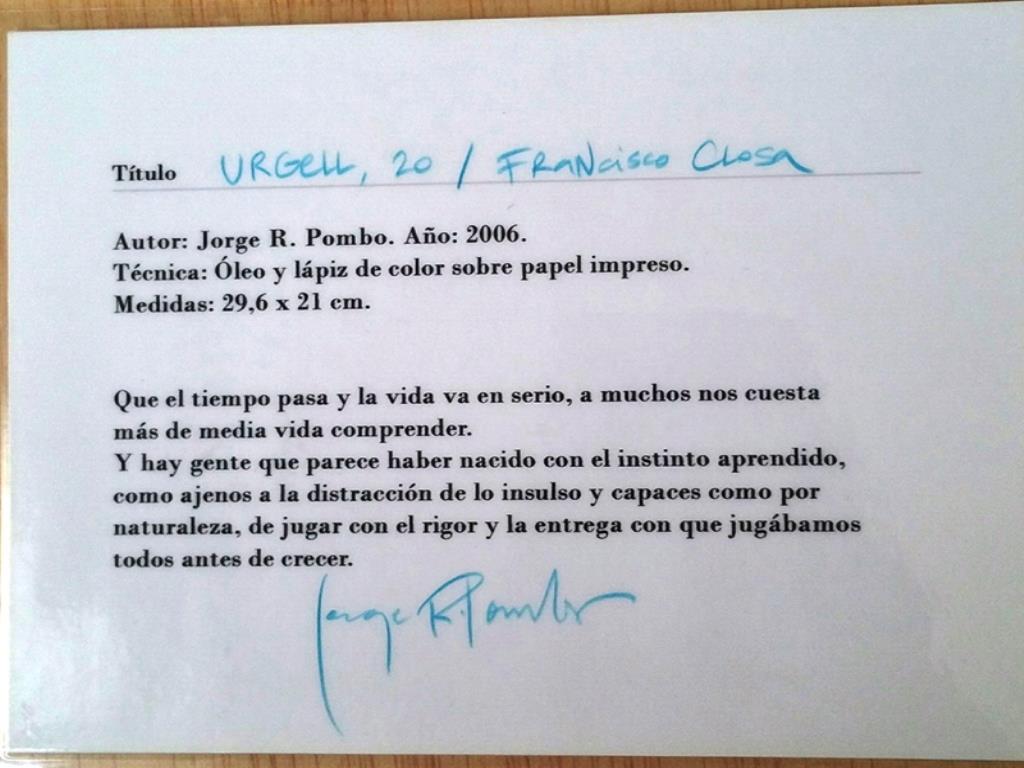 Título URGELL, 20 / FRANCISCO CLOSA
Autor: Jorge R. Pombo. Año: 2006.
Técnica: Óleo y lápiz de color sobre papel impreso.
Medidas: 29,6 x 21 cm.
Que el tiempo pasa y la vida va en serio, a muchos nos cuesta
más de media vida comprender.
Y hay gente que parece haber nacido con el instinto aprendido,
como ajenos a la distracción de lo insulso y capaces como por
naturaleza, de jugar con el rigor y la entrega con que jugábamos
todos antes de crecer.
Jorge R. Pombo